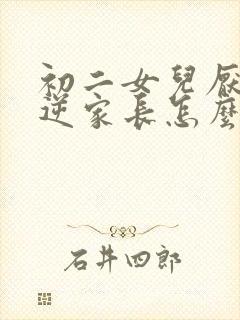 初二女兒厭
逆家長怎麼
石井四郎